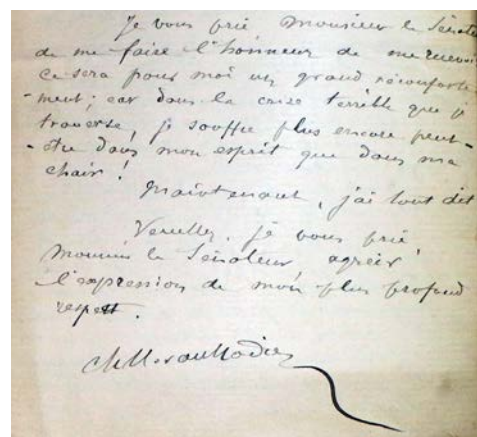 Je vous prie Monsieur le Sénateu
de me faire l'honneur de me recevoir
ce sera pour moi un grand réconforte
-ment; car dans la crise terrible que je
traverse, je souffre plus encore peut-
-être dans mon esprit que dans ma
chair!
Maintenant, j'ai tout dit
Veuillez, je vous prie,
Monsieur le Sénateur agréer
l'expression de mon plus profond
respect.